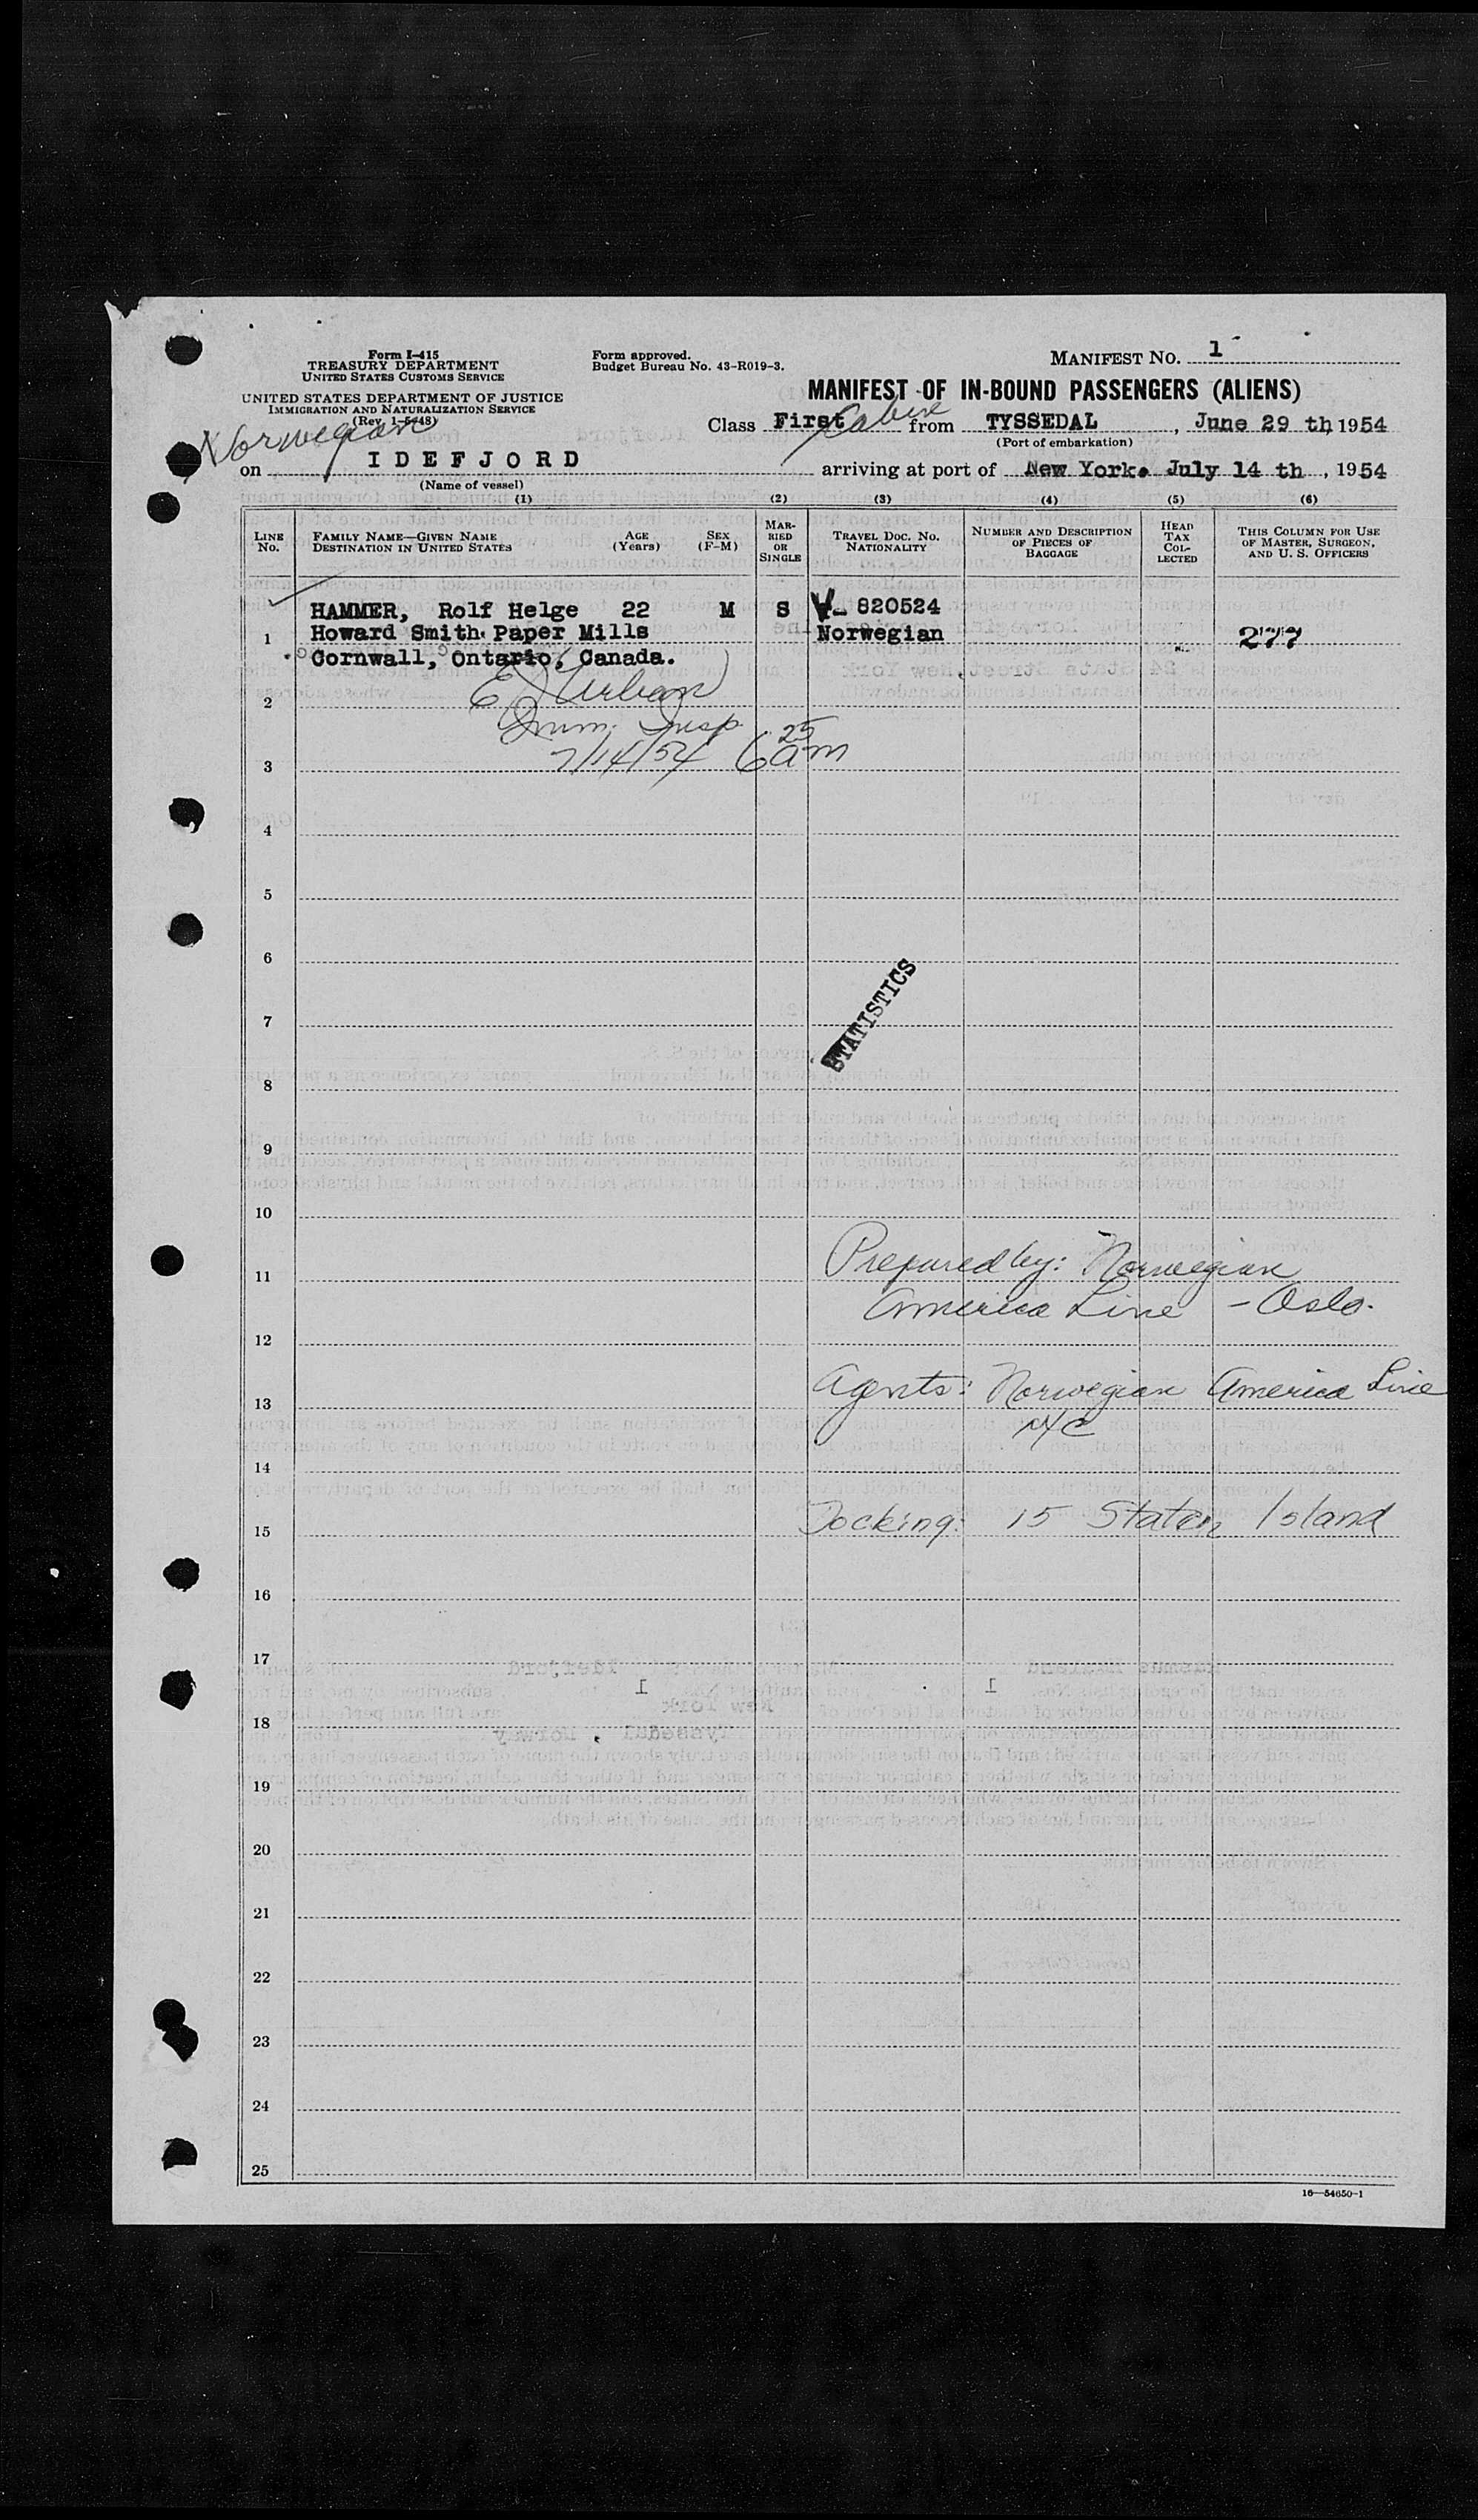 Form I-415
TREASURY DEPARTMENT
UNITED STATES CUSTOMS SERVICE
UNITED STATES DEPARTMENT OF JUSTICE
IMMIGRATION AND NATURALIZATION SERVICE
(Rev. 1-5-48)
Form approved.
Budget Bureau No. 43-R019-3.
MANIFEST NO. 1
MANIFEST OF IN-BOUND PASSENGERS (ALIENS)
Class First Cabin from TYSSEDAL, June 29 th, 1954
(Port of embarkation)
Norwegian
on IDEFJORD arriving at port of New York. July 14 th, 1954
(Name of vessel)
(1) (2) (3) (4) (5) (6)
LINE No. FAMILY NAME—GIVEN NAME DESTINATION IN UNITED STATES AGE (Years) SEX (F-M) MARRIED OR SINGLE TRAVEL DOC. NO. NATIONALITY NUMBER AND DESCRIPTION OF PIECES OF BAGGAGE HEAD TAX COLLECTED THIS COLUMN FOR USE OF MASTER, SURGEON, AND U. S. OFFICERS
HAMMER, Rolf Helge 22 M S V- 820524
1 Howard Smith Paper Mills Norwegian 277
Cornwall, Ontario, Canada.
2
Imm. Insp.
3 7/14/54 6 25 am
4
5
6
7
STATISTICS
8
9
10
11 Prepared by: Norwegian
America Line - Oslo.
12
13 Agents: Norwegian America Line
NYC
14
15 Docking: 15 Staten Island
16
17
18
19
20
21
22
23
24
25
16—54650-1